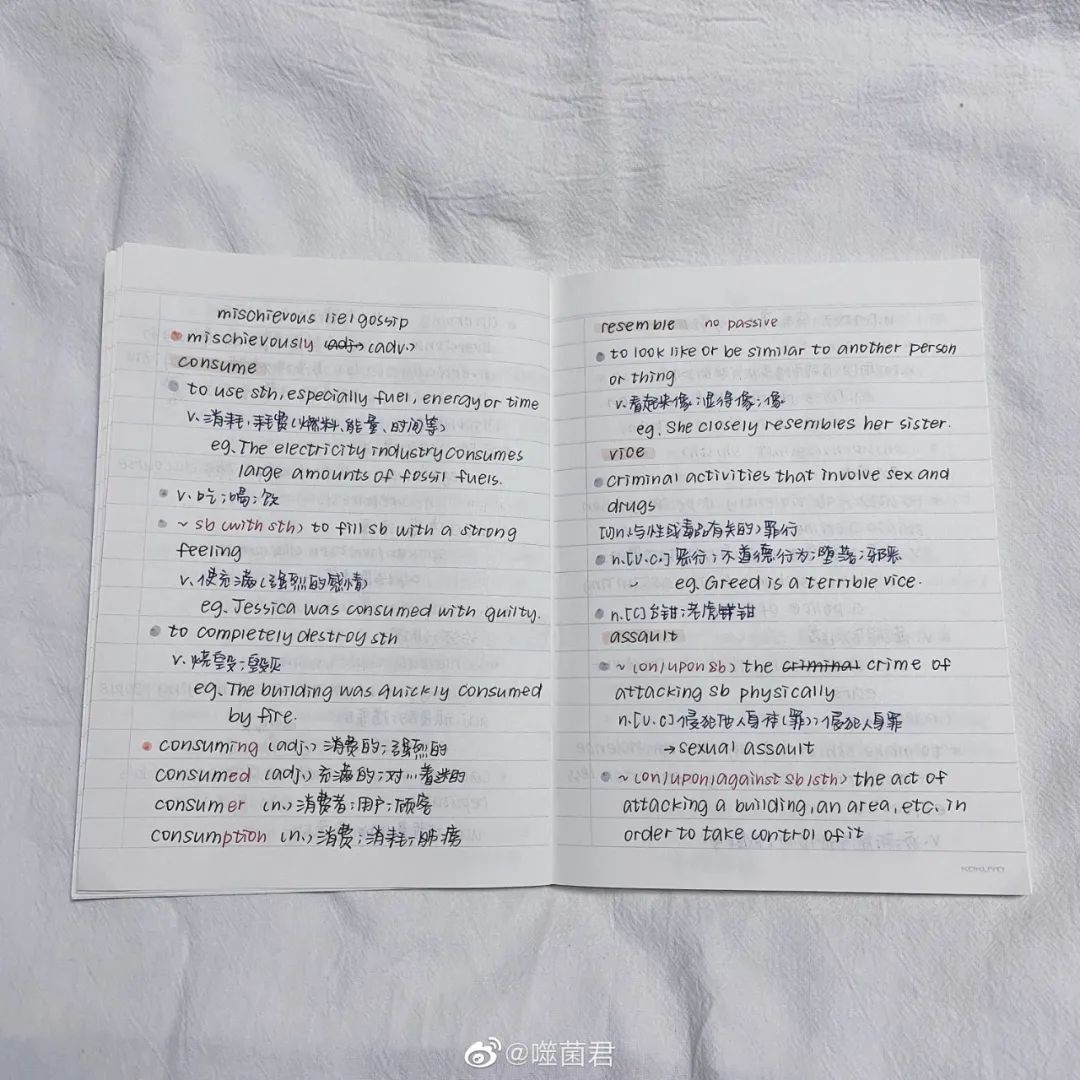 mischievous lie/gossip
mischievously (adj.) (adv.)
consume
to use sth, especially fuel, energy or time
v. 消耗,耗费(燃料、能量、时间等)
eg. The electricity industry consumes
large amounts of fossil fuels.
v. 吃;喝;饮
~ sb (with sth) to fill sb with a strong
feeling
v. 使充满(强烈的感情)
eg. Jessica was consumed with guilty.
to completely destroy sth
v. 烧毁;毁灭
eg. The building was quickly consumed
by fire.
consuming (adj.) 消费的;强烈的
consumed (adj.) 充满的;对…着迷的
consumer (n.) 消费者;用户;顾客
consumption (n.) 消费;消耗;肺痨
resemble no passive
to look like or be similar to another person
or thing
v. 看起来像;显得像;像
eg. She closely resembles her sister.
vice
criminal activities that involve sex and
drugs
[U]n. 与性或毒品有关的)罪行
n. [U.C.] 恶行;不道德行为;堕落;邪恶
eg. Greed is a terrible vice.
n. [C] 台钳;老虎钳
assault
~ (on/upon sb) the criminal crime of
attacking sb physically
n. [U.C] 侵犯他人身体(罪);侵犯人身罪
→ sexual assault
~ (on/upon/against sb/sth) the act of
attacking a building, an area, etc. in
order to take control of it
KOKUYO
@噬菌君